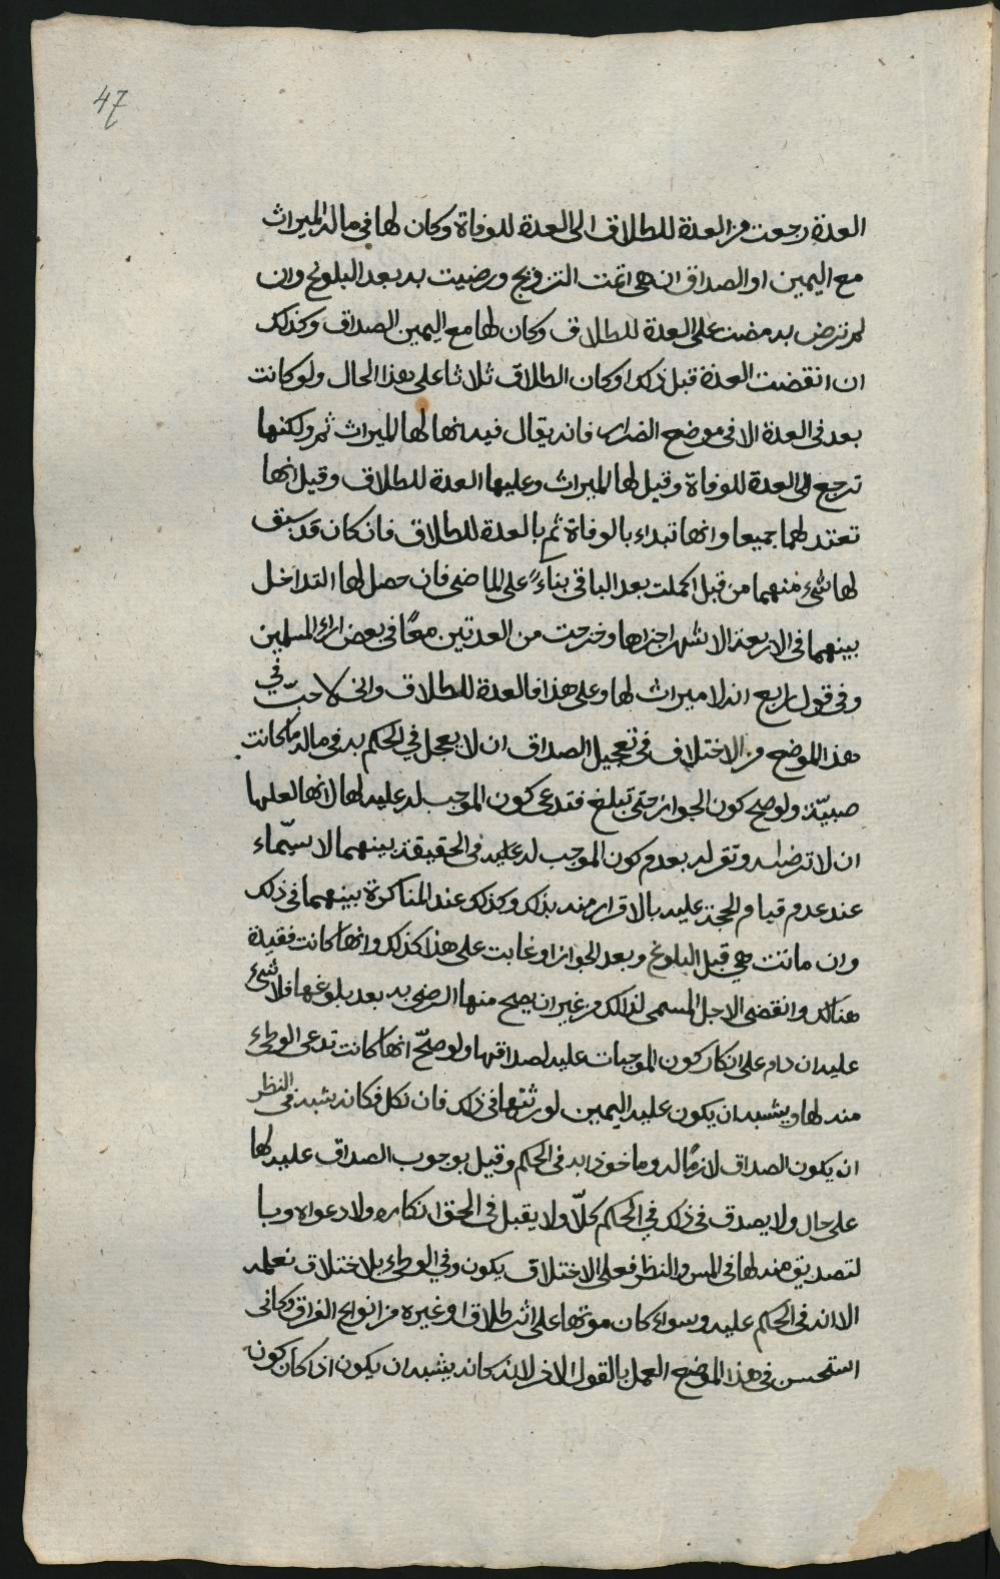 47
العدة رجعت من العدة للطلاق الى العدة للوفاة وكان لها في ماله الميراث
مع اليمين او الصداق ان هي اتمت التزويج ورضيت به بعد البلوغ وان
لم ترض به مضت على العدة للطلاق وكان لها مع اليمين الصداق وكذلك
ان انقضت العدة قبل ذلك او كان الطلاق ثلاثا على هذا الحال ولو كانت
بعد في العدة الا في موضع الضرار فانه يقال فيه انها لها الميراث ثم ولكنها
ترجع الى العدة للوفاة وقيل لها الميراث وعليها العدة للطلاق وقيل انها
تعتد لهما جميعا وانها تبداء بالوفاة ثم بالعدة للطلاق فان كان قد سبق
لها شيء منهما من قبل اكملت بعد الباقي بناءً على الماضي فان حصل لها التداخل
بينهما في الاربعة الاشهر اجزاها وخرجت من العدتين معًا في بعض اراء المسلمين
وفي قول رابع انه لا ميراث لها وعلى هذا فالعدة للطلاق واني لاحبّ في
هذا الموضع من الاختلاف في تعجيل الصداق ان لا يعجل في الحكم به في ماله ما كانت
صبيّة ولو صح كون الجواز حتى تبلغ فتدعي كون الموجب له عليه لها لانها لعلها
ان لا ترضاه وتقر له بعدم كون الموجب له عليه في الحقيقة بينهما لا سيّماء
عند عدم قيام الحجة عليه بالاقرار منه بذلك وكذلك عند المناكرة بينهما في ذلك
وان ماتت هي قبل البلوغ وبعد الجواز او غابت على هذا كذلك وانها كانت فقيدة
هنالك وانقضى الاجل المسمى لذلك من غير ان يصح منها الرضى به بعد بلوغها فلا شيء
عليه ان دام على انكار كون الموجبات عليه لصداقها ولو صحّ انها كانت تدعي الوطي
منه لها ويشبه ان يكون عليه اليمين لورثتها في ذلك فان نكل فكانه يشبه في النظر
ان يكون الصداق لازمًا له وماخوذا به في الحكم وقيل بوجوب الصداق عليه لها
على حال ولا يصدق في ذلك في الحكم كلّا ولا يقبل في الحق انكاره ولا دعواه وبا
لتصديق منه لها في المس والنظر فعلى الاختلاق يكون وفي الوطي بلا اختلاق نعلمه
الا انه في الحكم عليه وسواء كان موتها على اثر طلاق او غيره من انواع الفراق وكاني
استحسن في هذا الموضع العمل بالقول الاخر لانه كانه يشبه ان يكون اذا كان كون